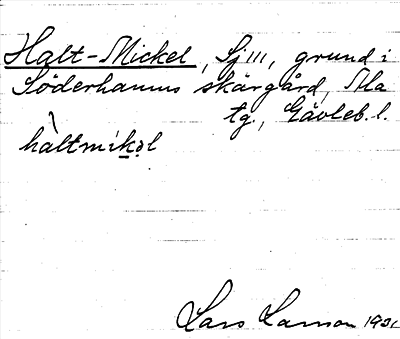 Halt-Mickel, Sj III, grund i
Söderhamns skärgård, Ala
tg., Gävleb. l.
hàltmik̲əl
Lars Larson 1931